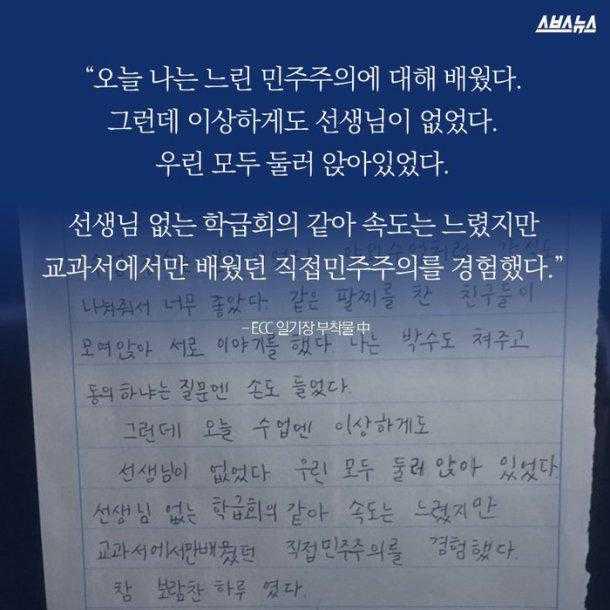 스브스뉴스
“오늘 나는 느린 민주주의에 대해 배웠다.
그런데 이상하게도 선생님이 없었다.
우린 모두 둘러 앉아있었다.
선생님 없는 학급회의 같아 속도는 느렸지만
교과서에서만 배웠던 직접민주주의를 경험했다.”
나눠줘서 너무 좋았다 같은 팔찌를 찬 친구들이
– ECC 일기장 부착물 中
모여앉아 서로 이야기를 했다 나는 박수도 쳐주고
동의 하냐는 질문엔 손도 들었다.
그런데 오늘 수업엔 이상하게도
선생님이 없었다 우린 모두 둘러 앉아 있었다
선생님 없는 학급회의 같아 속도는 느렸지만
교과서에서만배웠던 직접민주주의를 경험했다.
참 보람찬 하루 였다.